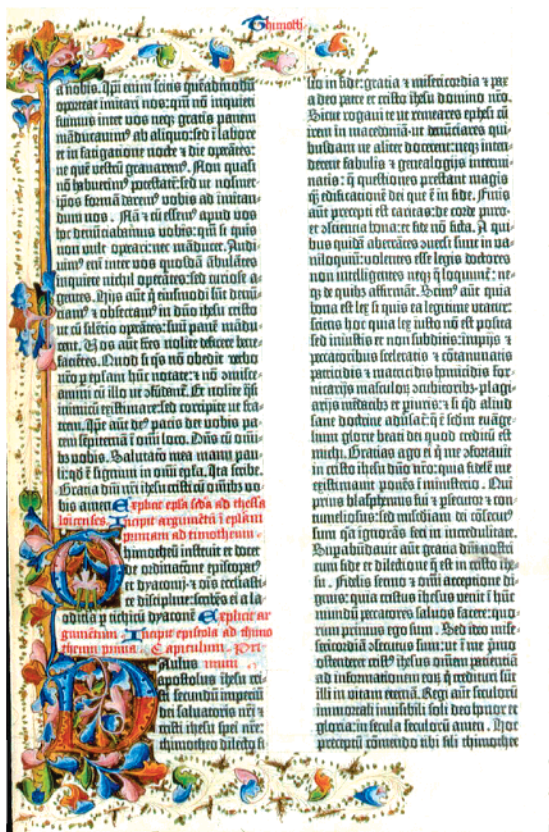 Thimoth.
a nobis. Ipsi enim scitis quēadmodū
oporteat imitari nos: qm̄ nō inquieti
fuimus inter vos neqz gratis panem
māducauimꝰ ab aliquo: sed ī labore
et in fatigatione nocte ⁊ die opeātes:
ne quē vestrū grauarem⁹. Non quasi
nō habuerim⁹ potestatē: sed ut nosmet-
ipos formā darem⁹ vobis ad imitan-
dum nos. Nā ⁊ cū essem⁹ apud vos
hoc denūciabamus vobis: qm̄ si quis
non vult opeari: nec māducet. Audi-
uim⁹ enī inter vos quosdā ābulātes
inquiete nichil opeātes: sed curiose a-
gentes. Hijs autē q̄ eiusmodi sūt denū-
ciam⁹ ⁊ obsecram⁹ in dn̄o ihesu cristo
ut cū silentio opeātes: suū panē mādu-
cent. Vos aūt fr̄es nolite deficere bene-
facientes. Quod si q̄s nō obedit verbo
nr̄o p epsam hūc notate: ⁊ nō ↄmisce-
amini cū illo ut ↄfundat̄. Et nolite q̄si
inimicū existimare: sed corripite ut fra-
trem. Ipse aūt de⁹ pacis det vobis pa-
cem sempiternā ī omī loco. Dn̄s cū omī-
bz vobis. Salutatō mea manu pau-
li: qd ē signum in omī epsa. Ita scribo.
Gratia dn̄i nr̄i ihesu cristi cū omībz vo-
bis amen. Explicit epsa scda ad thessa
lonicenses. Incipit argumētū ī epsam
primam ad timotheum.
Thimotheū instruit et docet
de ordinatione episcopat⁹
et dyaconij: ⁊ oīs ecclesiasti-
ce discipline: scribēs ei a la-
odicia p tichicū dyaconē Explicit ar
gumentum Incipit epistola ad thimo
theum prima Capitulum Pri
mum
Paulus
apostolus ihesu cri-
sti secundū imperiū
dei saluatoris nr̄i ⁊
cristi ihesu spei nr̄e:
thimotheo dilecto fi-
lio in fide: gratia ⁊ misericordia ⁊ pax
a deo patre et cristo ihesu domino nr̄o.
Sicut rogaui te ut remaneres ephesi cū
irem in macedoniā ut denūciares qui-
busdam ne aliter docerent: neqz inten-
derent fabulis ⁊ genealogijs intermi-
natis: q̄ questiones prestant magis
q̄ edificationē dei que ē in fide. Finis
aūt precepti est caritas: de corde puro-
et ↄscientia bona: et fide nō ficta. A qui-
bus quidā aberrātes ↄuersi sunt in va-
niloquiū: volentes esse legis doctores
non intelligentes neqz q̄ loquunt̄: ne-
qz de quibz affirmāt. Scim⁹ aūt quia
bona est lex si quis ea legitime utatur:
sciens hoc quia lex iusto nō est posita
sed iniustis et non subditis: impijs ⁊
peccatoribus sceleratis ⁊ cōtaminatis
parricidis ⁊ matricidis homicidis for-
nicarijs masculoꝝ ↄcubitoribz- plagi-
arijs mēdacibz et periuris: ⁊ si qd aliud
sane doctrine adūsat̄: q̄ ē scdm euāge-
lium glorie beati dei quod creditū est
michi. Gratias ago ei q̄ me ↄfortauit
in cristo ihesu dn̄o nr̄o: quia fidelē me
existimauit ponēs ī ministerio. Qui
prius blasphemus fui ⁊ psecutor ⁊ con-
tumeliosus: sed misc̄diam dei cōsecut⁹
sum q̄a ignorās feci in incredulitate.
Supabūdauit aūt gratia dn̄i nostri
cum fide et dilectione q̄ est in cristo ihe-
su. Fidelis sermo ⁊ omī acceptione di-
gnus: quia cristus ihesus venit ī hūc
mundū peccatores saluos facere: quo-
rum primus ego sum. Sed ideo mise-
ricordiā ↄsecutus sum: ut ī me p̄mo
ostenderet crist⁹ ihesus omnem patientiā
ad informationem eoꝝ q̄ credituri sūt
illi in vitam eternā. Regi aūt seculorū
immortali inuisibili soli deo honor et
gloria: in secula seculorū amen. Hoc
preceptū cōmendo tibi fili thimothee